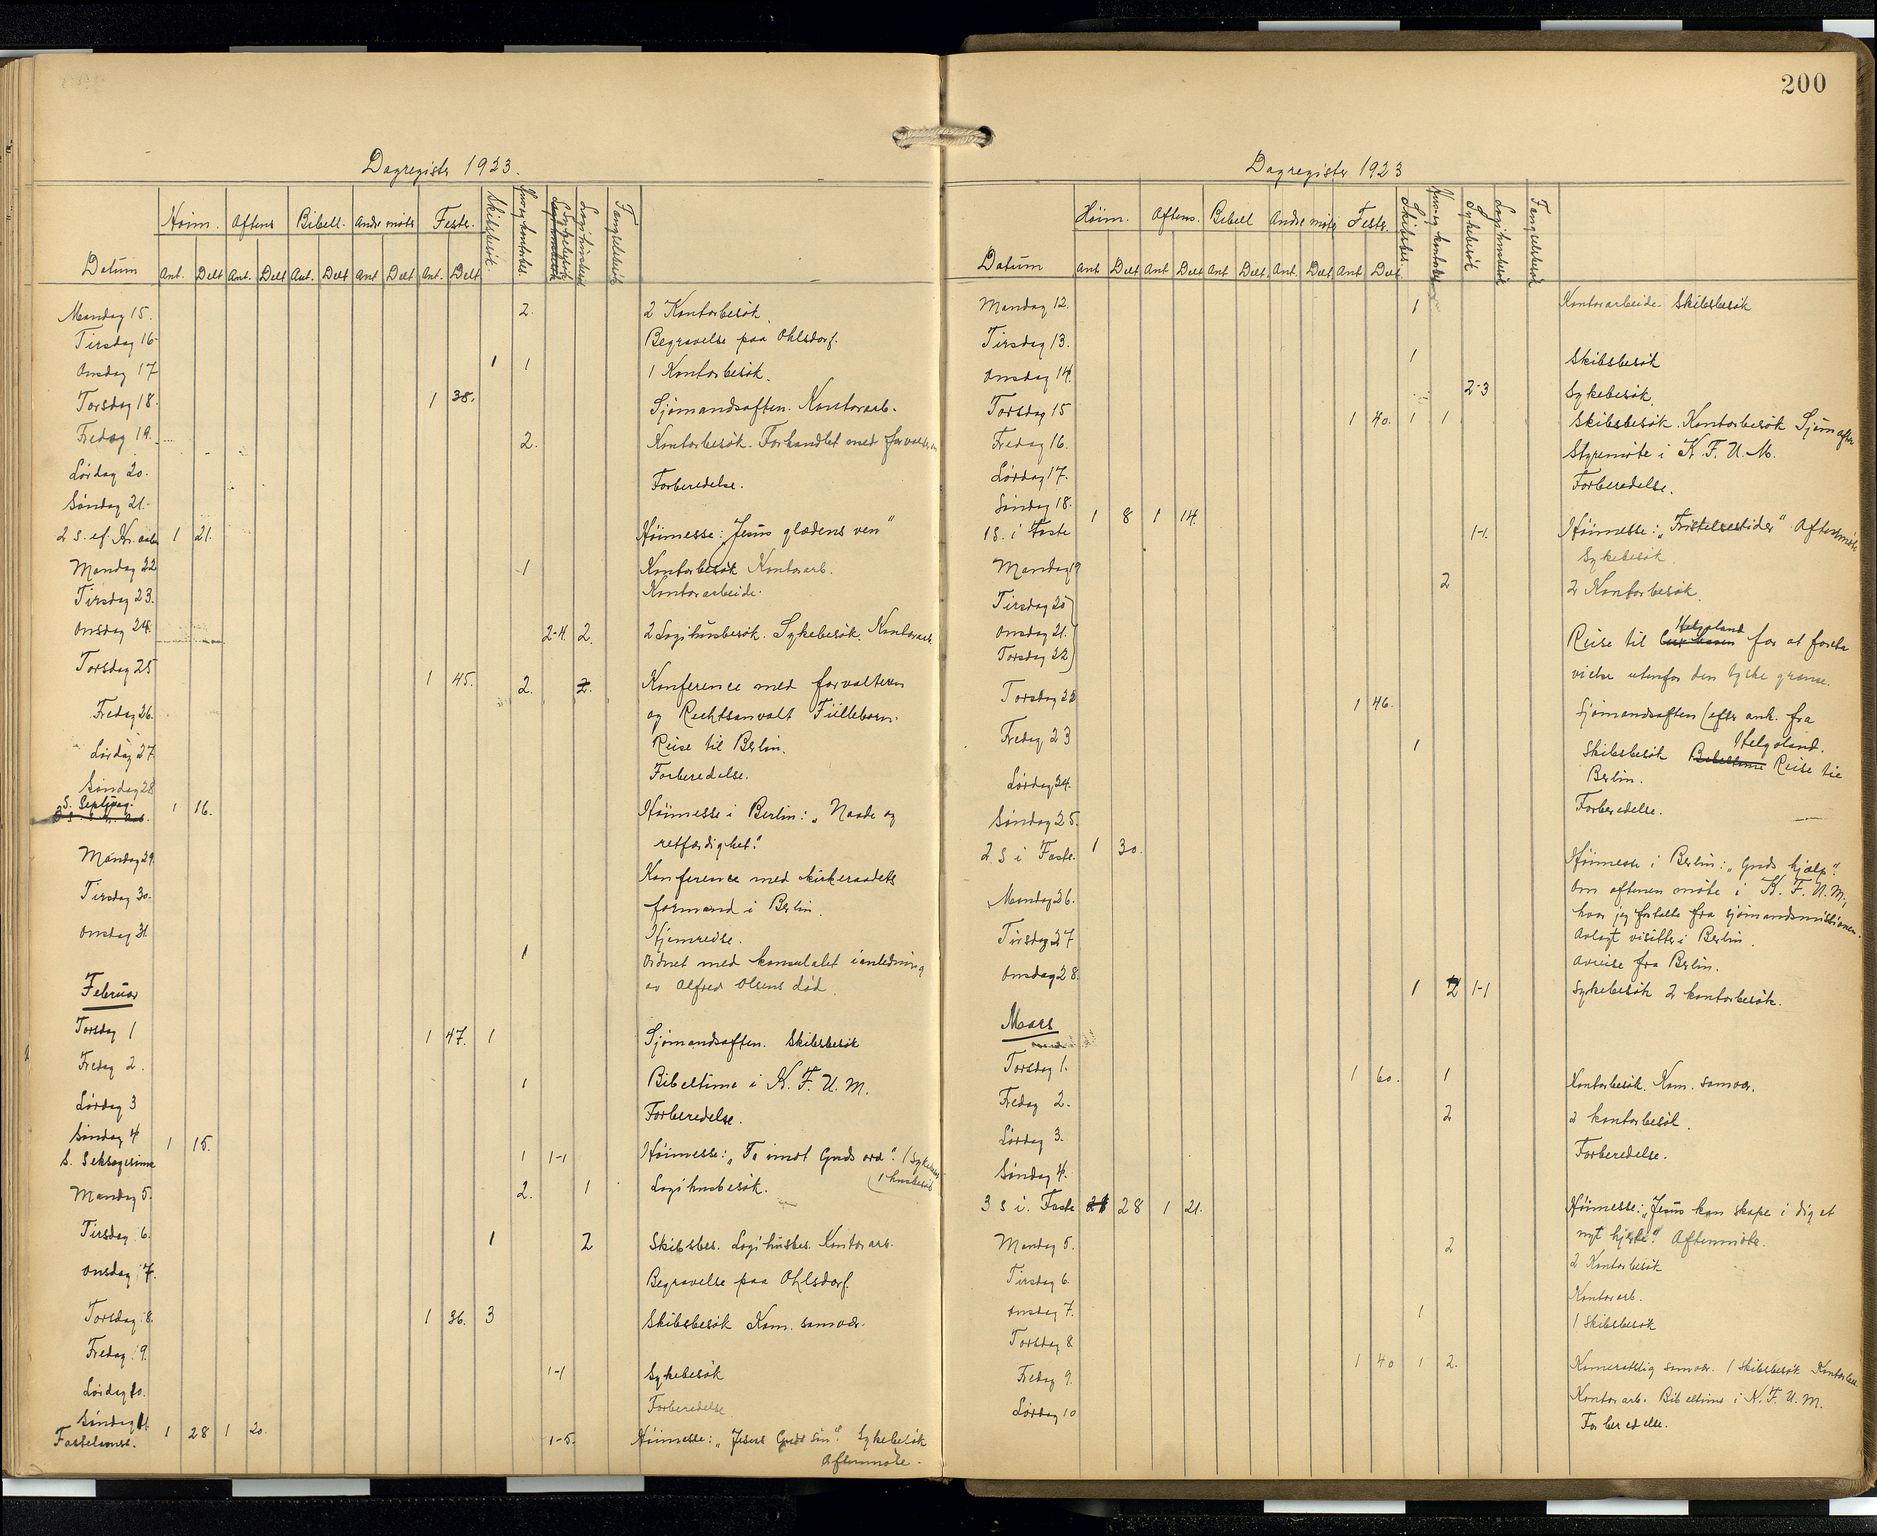 Dagregister 1923.
Høim. Aftens Bibell. Andre møt. Feste. Skibsbesøk Hus og kontorbes. Sykebesøk Logihusbesøk Fængselsbesøk
Datum Ant. Delt Ant. Delt Ant. Delt Ant Delt Ant. Delt.
Mandag 15. 2. 2 Kontorbesøk
Tirsdag 16. Begravelse paa Ohlsdorf.
Onsdag 17 1 1 1 Kontorbesøk.
Torsdag 18. 1 38. Sjømandsaften. Kontorarb.
Fredag 19. 2. Kontorbesøk. Forhandlet med forvalteren
Lørdag 20. Forberedelse.
Søndag 21.
2 S. ef. Kr. aab. 1 21. Høimesse: "Jesus glædens ven"
Mandag 22 1 Kontorbesøk Kontorarb.
Tirsdag 23. Kontorarbeide.
Onsdag 24. 2-4 2. 2 Logihusbesøk. Sykebesøk. Kontorarb.
Torsdag 25 1 45. 2. 2. Konference med forvalteren
og Rechtsanvalt Fülleborn.
Fredag 26. Reise til Berlin.
Lørdag 27. Forberedelse.
Søndag 28
S. Septuag. 1 16. Høimesse i Berlin: "Naade og
retfærdighet."
Mandag 29. Konference med kirkeraadets
formand i Berlin.
Tirsdag 30. Hjemreise.
Onsdag 31. 1 Ordnet med konsulatet i anledning
av Alfred Olsens død.
Februar
Torsdag 1 1 47. 1 Sjømandsaften. Skibsbesøk
Fredag 2. 1 Bibeltime i K. F. U. M.
Lørdag 3 Forberedelse.
Søndag 4 1 15.
S. Seksagesima 1 1-1 Høimesse: "Ta imot Guds ord". (Sykebes.
1 husbesøk
Mandag 5. 2. 1 Logihusbesøk.
Tirsdag 6. 1 2 Skibsbes. Logihusbes. Kontorarb.
Onsdag 7. Begravelse paa Ohlsdorf.
Torsdag 8. 1 36. 3 Skibsbesøk Kam. samvær.
Fredag 9. 1-1 Sykebesøk
Lørdag 10. Forberedelse
Søndag 11.
Fastelavns. 1 28 1 20. 1-5. Høimesse: "Jesus Guds søn". Sykebesøk
Aftenmøte.
200
Dagregister 1923
Høim. Aftens. Bibell Andre møte Feste. Skibsbes. Hus og kontorbes Sykebesøk Logihusbesøk Fængselsbesøk
Datum Ant Delt Ant Delt Ant Delt Ant. Delt Ant Delt
Mandag 12. 1 Kontorarbeide. Skibsbesøk
Tirsdag 13. 1 Skibsbesøk
Onsdag 14. 2-3 Sykebesøk.
Torsdag 15 1 40. 1 1 Skibsbesøk. Kontorbesøk Sjømaften
Fredag 16. Styremøte i K. F. U. M.
Lørdag 17. Forberedelse.
Søndag 18.
1 S. i Faste 1 8 1 14. 1-1. Høimesse: "Fristelsestider" Aftenmøte
Sykebesøk.
Mandag 19 2 2 Kontorbesøk.
Tirsdag 20
Onsdag 21.
Torsdag 22
Helgoland
Reise til Cuxhaven for at foreta
vielse utenfor den tyske grænse.
Torsdag 22 1 46. Sjømandsaften (efter ank. fra
Helgoland.
Fredag 23 1 Skibsbesøk Bibeltime Reise til
Berlin.
Lørdag 24. Forberedelse.
Søndag 25.
2. S i Faste. 1 30. Høimesse i Berlin: "Guds hjælp".
Om aftenen møte i K. F. U. M,
hvor jeg fortalte fra sjømandsmissionen.
Mandag 26. Avlagt visitter i Berlin.
Tirsdag 27 Avreise fra Berlin.
Onsdag 28. 1 2 1-1 Sykebesøk 2 kontorbesøk.
Mars
Torsdag 1. 1 60. 1 Kontorbesøk. Kam. samvær.
Fredag 2. 2 2 kontorbesøk.
Lørdag 3. Forberedelse.
Søndag 4.
3 S i. Faste 1 28 1 21. Høimesse: "Jesus kan skape i dig et
nyt hjerte". Aftenmøte.
Mandag 5. 2 2 Kontorbesøk
Tirsdag 6 Kontorarb.
Onsdag 7. 1 1 Skibsbesøk
Torsdag 8 1 40 1 2. Kameratslig samvær. 1 Skibsbesøk Kontorbes.
Fredag 9. Kontorarb. Bibeltime i K. F. U. M.
Lørdag 10 Forberedelse.